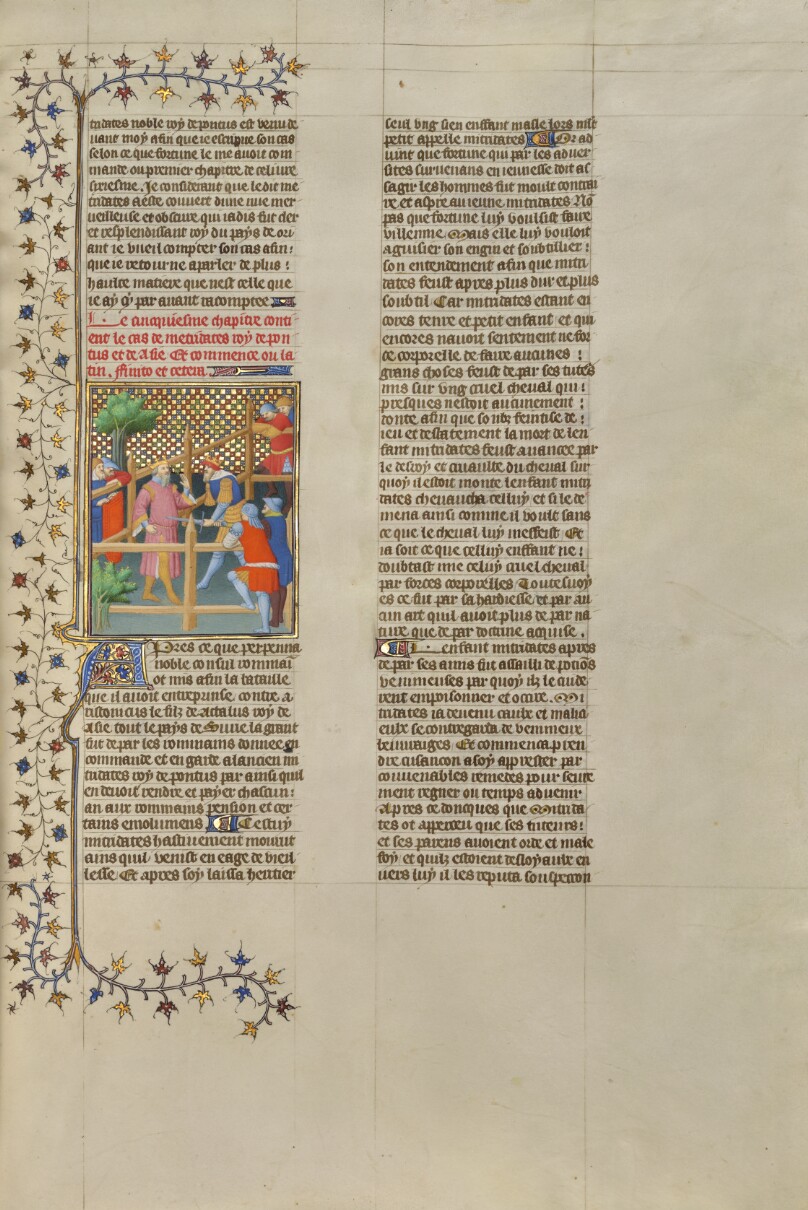 tridates noble roy de pontus est venu de
uant moy afin que ie escripue son cas
selon ce que fortune le me auoit com
mande ou premier chapitre de ce liure
sixiesme. Je considerant que le dit me
tridates a este couuert dune nue mer
ueilleuse et obscure qui iadis fut cler
et resplendissant roy du pays de ori
ant ie vueil compter son cas afin:
que ie retourne a parler de plus:
haulte matiere que nest celle que
ie ay cy par auant racomptee
Le cinquiesme chapitre conti
ent le cas de metridates roy de pon
tus et de asie Et commence ou la
tin. ffinito et cetera.
Apres ce que perpenna
noble consul rommai
ot mis afin la bataille
que il auoit entreprinse contre a
ristonicus le filz de actalus roy de
asie tout le pays de Surie la grant
fut de par les rommains donnee en
commande et en garde a lancien mi
tridates roy de pontus par ainsi quil
en deuoit rendre et payer chascun:
an aux rommains pension et cer
tains emolumens Cestuy
mitridates hastiuement mourut
ains quil venist en eage de vieil
lesse Et apres soy laissa heritier
seul vng sien enffant masle lors mlt
petit appelle mitridates Or ad
uint que fortune qui par les aduer
sites suruenans en ieunesse doit as
sagir les hommes fut moult contrai
re et aspre au ieune mitridates No
pas que fortune luy voulsist faire
villennie Mais elle luy vouloit
aguisier son engin et soubtilier:
son entendement afin que mitri
dates feust apres plus dur et plus
soubtil Car mitridates estant en
cores tenre et petit enfant et qui
encores nauoit sentement ne for
ce corporelle de faire aucunes:
grans choses feust de par ses tuteurs
mis sur vng cruel cheval qui:
presques nestoit aucunement:
donte, afin que soubz feintise de:
ieu et desbatement la mort de len
fant mitridates feust auancee par
le desroy et cruaulte du cheval sur
quoy il estoit monte lenfant mitri
dates cheuaucha celluy et si le de
mena ainsi comme il voult sans
ce que le cheval luy meffeist Et
ia soit ce que celluy enffant ne:
doubtast mie celuy cruel cheval
par forces corporelles Toutesuoy
es ce fut par sa hardiesse et par au
cun art quil auoit plus de par na
ture que de par doctrine acquise.
Lenfant mitridates apres
de par ses amis fut assailli de potios
venimeuses par quoy ilz le cuide
rent empoisonner et occire. Mi
tridates ia deuenu caute et malici
eulx se contregarda de venimeux
beuuraiges Et commenca pren
dre cusancon a soy apprester par
conuenables remedes pour seure
ment regner ou temps aduenir
Apres ce doncques que Mitrida
tes ot apperceu que ses tuteurs:
et ses parens auoient orde et male
foy et quilz estoient desloyaulx en
uers luy il les reputa souspecon